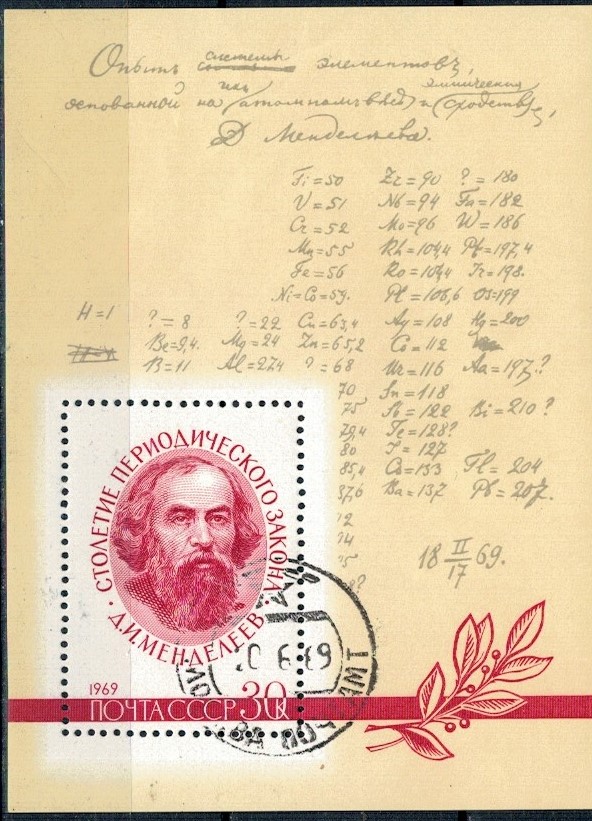 Опытъ системы элементовъ,
основанной на ихъ атомномъ вѣсѣ и химическомъ сродствѣ,
Д Менделѣева.
Ti=50 Zr=90 ?=180
V=51 Nb=94 Ta=182
Cr=52 Mo=96 W=186
Mn=55 Rh=104,4 Pt=197,4
Fe=56 Ro=104,4 Ir=198.
Ni=Co=59. Pl=106,6 Os=199
H=1 ?=8 ?=22 Cu=63,4 Ag=108 Hg=200
Be=9,4. Mg=24 Zn=65,2 Cd=112
B=11 Al=27,4 ?=68 Ur=116 Au=197.?
70 Sn=118
75 Sb=122 Bi=210?
79,4 Te=128?
80 I=127
85,4 Cs=133 Tl=204
87,6 Ba=137 Pb=207.
18 II/17 69.
СТОЛЕТИЕ ПЕРИОДИЧЕСКОГО ЗАКОНА
Д.И.МЕНДЕЛЕЕВ
1969
ПОЧТА СССР 30К
МОСКВА ПОЧТАМТ